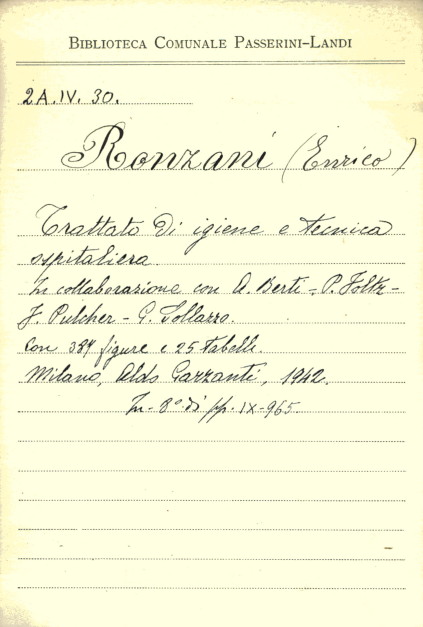 BIBLIOTECA COMUNALE PASSERINI-LANDI
2A.IV. 30.
Ronzani (Enrico)
Trattato di igiene e tecnica
ospitaliera
In collaborazione con A. Berti - P. Foltz -
F. Pulcher - G. Sollazzo.
Con 387 figure e 25 tabelle.
Milano, Aldo Garzanti, 1942.
In- 8º di pp. IX-965.